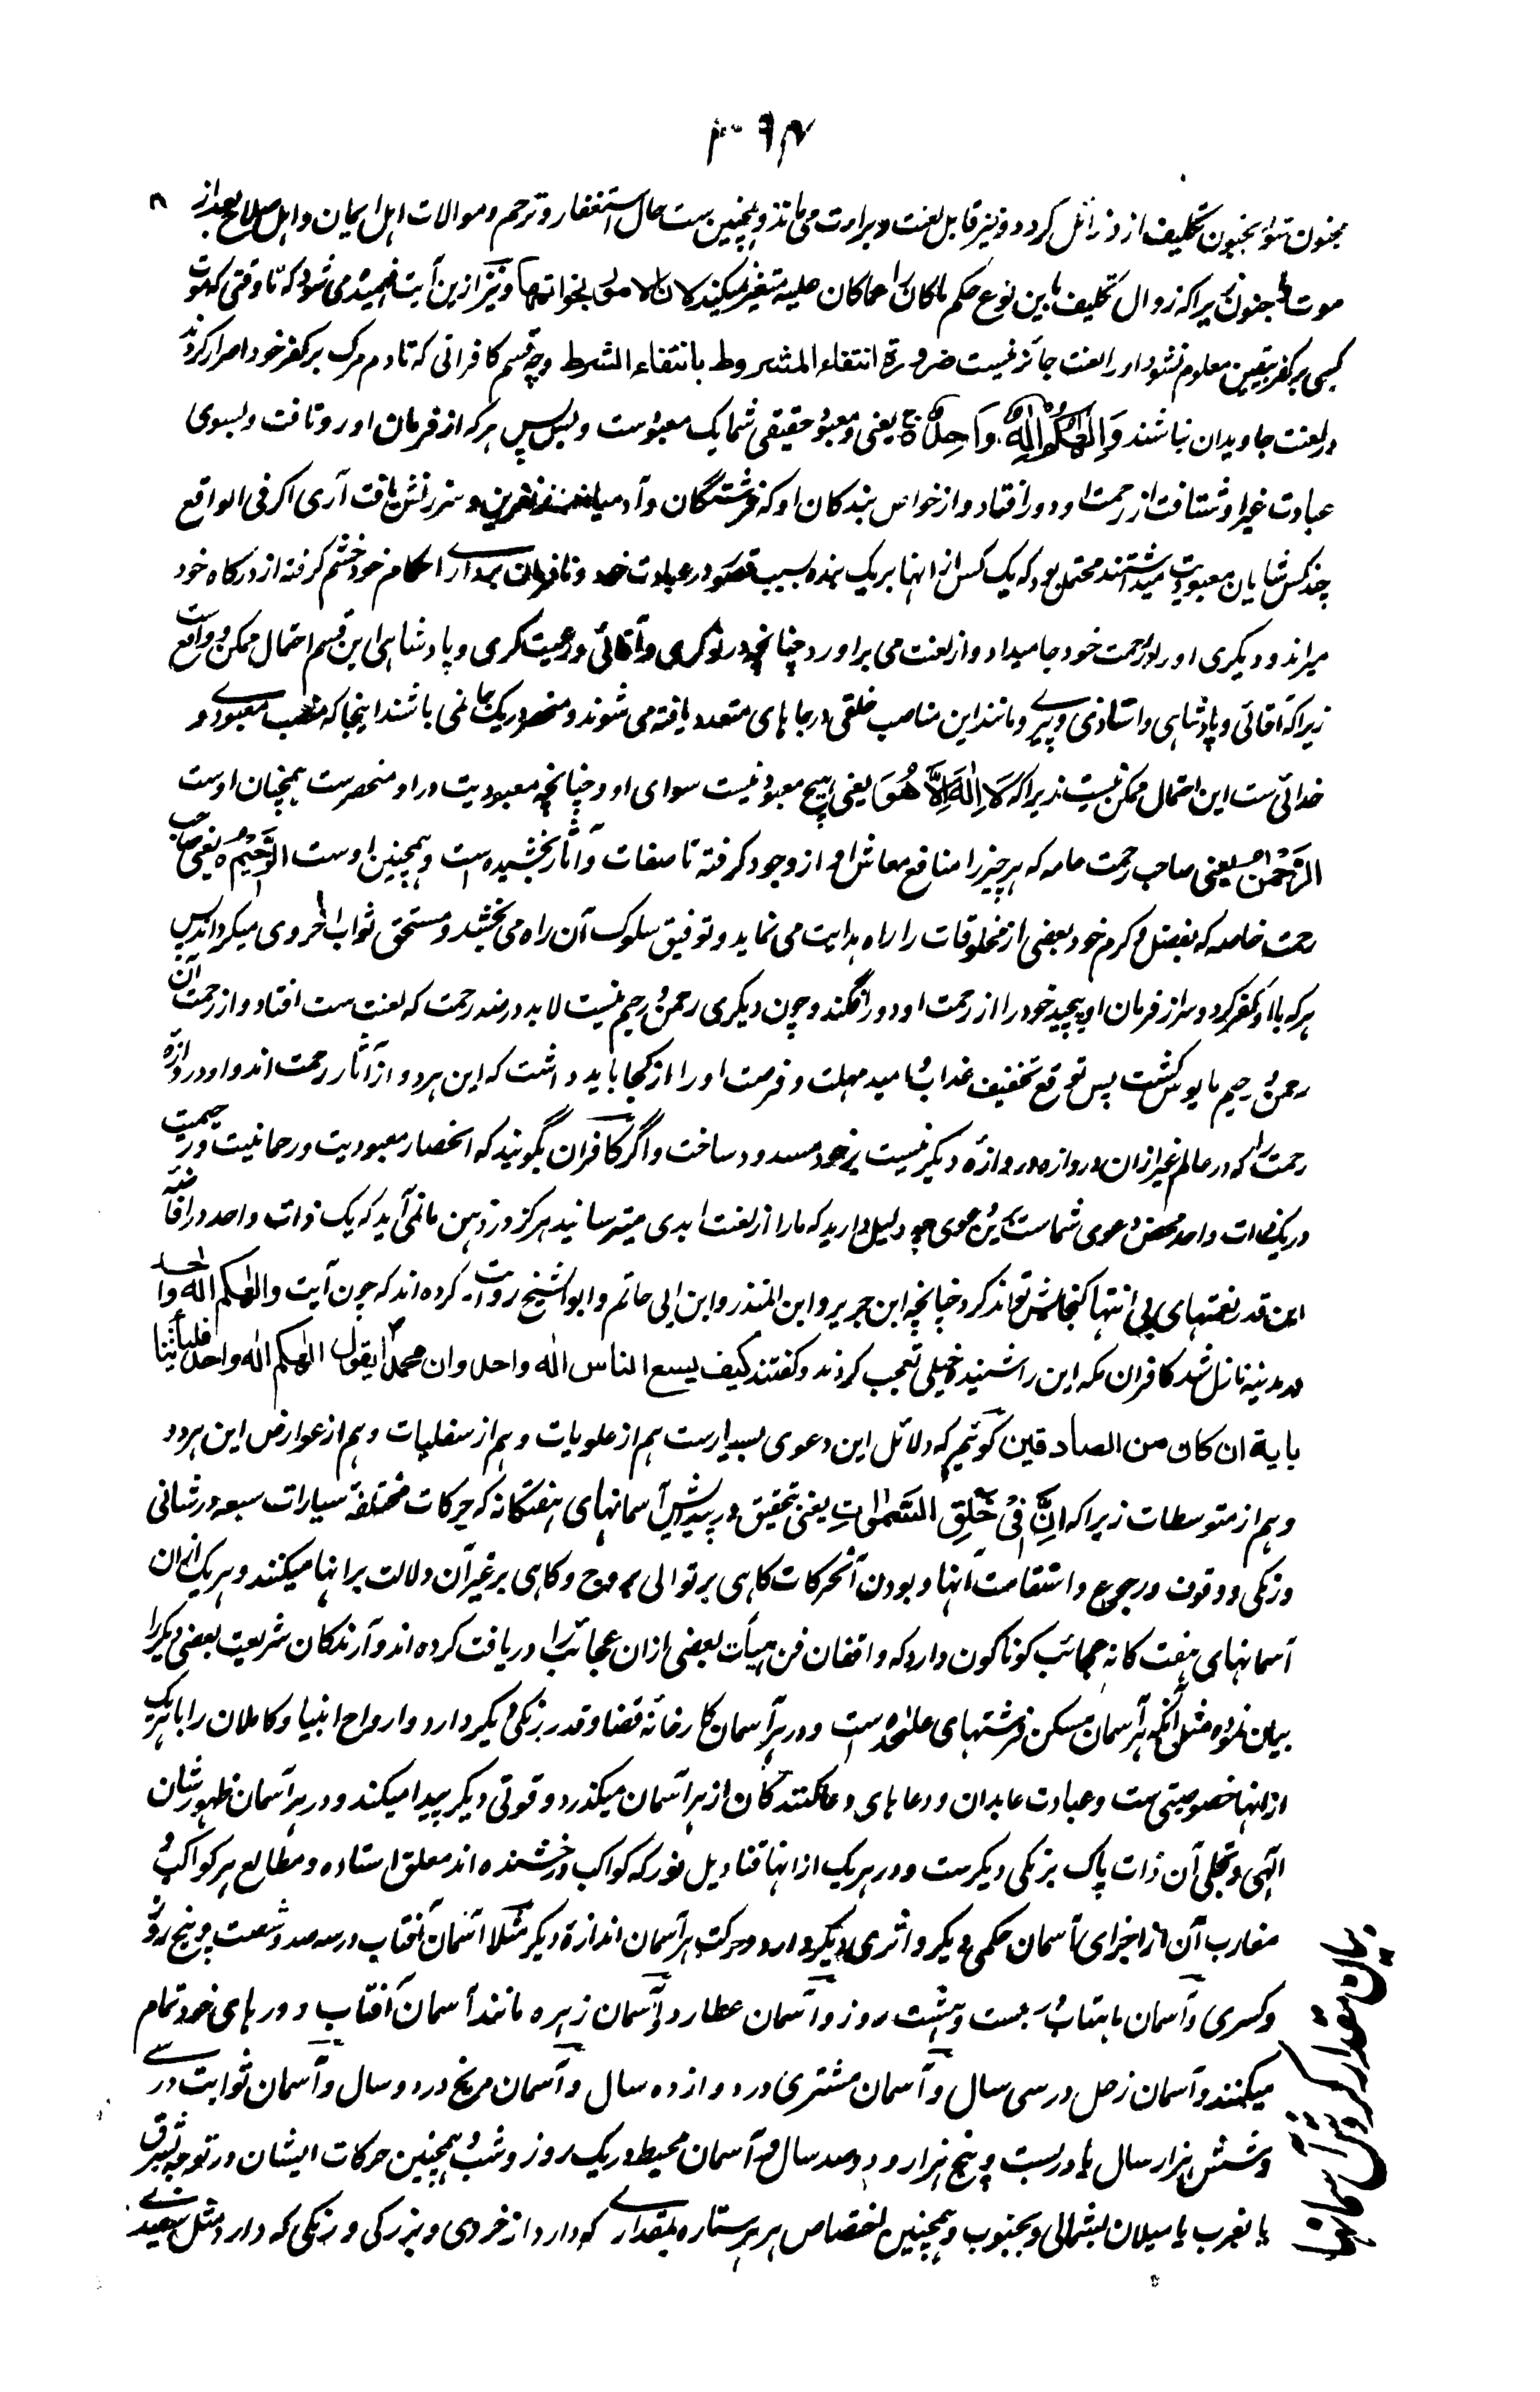 مجنون شود بجنون تکلیف از و زائل کردد و نیز قابل لعنت و براءت می‌ماند و همچنین ست حال استغفار و ترحم و موالات اهل ایمان و اهل صلاح بعد از
موت یا جنون زیرا که زوال تکلیف باین نوع حکم ما کان را عما کان علیه متغیر نمیکند لان الامور بخواتمها و نیز ازین آیت فهمیده می شود که تا وقتی که موت
کسی بر کفر بیقین معلوم نشود او را لعنت جائز نیست ضرورة انتفاء المشروط بانتفاء الشرط و چه قسم کافرانی که تا دم مرک بر کفر خود اصرار کردند
در لعنت جاویدان نباشند وَاِلٰهُكُمْ اِلٰهٌ وَاحِدٌ یعنی و معبود حقیقی شما یک معبود ست و بس پس هر که از فرمان او رو تافت و بسوی
عبادت غیر او شتافت از رحمت او دور افتاد و از خواص بندکان او که فرشتگان و آدمیانند نفرین و سرزنش یافت آری اکر فی الواقع
چند کس شایان معبودیت میداشتند محتمل بود که یک کس از انها بر یک بنده بسبب قصور در عبادت خود و نافرمان برداری احکام خود خشم کرفته از درکاه خود
میراند و دیکری او را در رحمت خود جا میداد و از لعنت می براورد چنانچه در نوکری و آقائی و رعیت کری و پادشاهی این قسم احتمال ممکن و واقع ست
زیرا که آقائی و پادشاهی و استاذی و پیری و مانند این مناصب خلقی در جاهای متعدد یافته می شوند و منحصر در یک جا نمی باشند اینجا که منصب معبودی و
خدائی ست این احتمال ممکن نیست زیرا که لَا اِلٰهَ اِلَّا هُوَ یعنی هیچ معبود نیست سوای او و چنانچه معبودیت در او منحصرست همچنان اوست
الرَّحْمٰنُ یعنی صاحب رحمت عامه که هر چیز را منافع معاش او از وجود کرفته تا صفات و آثار بخشیده است و همچنین اوست الرَّحِيْمُ یعنی صاحب
رحمت خاصه که بفضل و کرم خود بعضی از مخلوقات را راه هدایت می نماید و توفیق سلوک آن راه می بخشد و مستحق ثواب اخروی میکرداند پس
هر که با او کفر کرد و سر از فرمان او پیچید خود را از رحمت او دور افکند و چون دیکری رحمن و رحیم نیست لابد در ضد رحمت که لعنت ست افتاد و از رحمت آن
رحمن و رحیم مایوس کشت پس توقع تخفیف عذاب و امید مهلت و فرصت او را از کجا باید داشت که این هر دو از آثار رحمت اند و او دروازهٔ
رحمت را که در عالم غیر ازان دروازه دروازهٔ دیکر نیست بر خود مسدود ساخت و اگر کافران بگویند که انحصار معبودیت و رحمانیت و رحیمیت
در یک ذات واحد محض دعوی شماست برین دعوی چه دلیل دارید که ما را از لعنت ابدی میترسانید هرکز در ذهن ما نمی آید که یک ذات واحد در افاضهٔ
این قدر نعمتهای بی انتها کنجائش تواند کرد چنانچه ابن جریر و ابن المنذر و ابن ابی حاتم و ابو الشیخ روایت کرده اند که چون آیت والٰهکم الٰه واحد
در مدینه نازل شد کافران مکه این را شنیده خیلی تعجب کردند و کفتند کیف یسع الناس اله واحد وان محمدا یقول الٰهکم اله واحد فلیأتنا
بایة ان کان من الصادقین کوئیم که دلائل این دعوی بسیارست هم از علویات و هم از سفلیات و هم از عوارض این هر دو
و هم از متوسطات زیرا که اِنَّ فِيْ خَلْقِ السَّمٰوٰتِ یعنی بتحقیق در پیدایش آسمانهای هفتکانه که حرکات مختلفه سیارات سبعه در شتابی
و زنکی و وقوف و رجوع و استقامت آنها و بودن آن حرکات کاهی بر توالی بروج و کاهی بر غیر آن دلالت بر انها میکنند و هر یک ازان
آسمانهای هفت کانه عجائب کوناکون دارد که واقفان فن هیأت بعضی ازان عجائب را دریافت کرده اند و آرندکان شریعت بعضی دیکر را
بیان نموده مثل آنکه هر آسمان مسکن فرشتهای علیحده است و در هر آسمان کارخانه قضا و قدر برنکی دیکر دارد و ارواح انبیا و کاملان را با هر یک
از انها خصوصیتی ست و عبادت عابدان و دعاهای دعا کنندکان از هر آسمان میکذرد و قوتی دیکر پیدا میکند و در هر آسمان ظهور شان
الهی و تجلی آن ذات پاک برنکی دیکرست و در هر یک از انها قنادیل نور که کواکب درخشنده اند معلق استاده و مطالع هر کوکب و
مغارب آن از اجزای آسمان حکمی دیکر و اثری دیکر دارد و حرکت هر آسمان اندازهٔ دیکر مثلا آسمان آفتاب در سه صد و شصت و پنج روز
و کسری و آسمان ماهتاب در بست و هشت روز و آسمان عطارد و آسمان زهره مانند آسمان آفتاب دورهای خود تمام
میکنند و آسمان زحل در سی سال و آسمان مشتری در دوازده سال و آسمان مریخ در دو سال و آسمان ثوابت در سی
و شش هزار سال یا در بست و پنج هزار و دو صد سال و آسمان محیط در یک روز و شب و همچنین حرکات ایشان در توجه بشرق
یا بغرب یا میلان بشمال و بجنوب و همچنین اختصاص هر هر ستاره بمقداری که دارد از خردی و بزرکی و رنکی که دارد مثل سفیدی
بیان مقدار کردش آسمانها